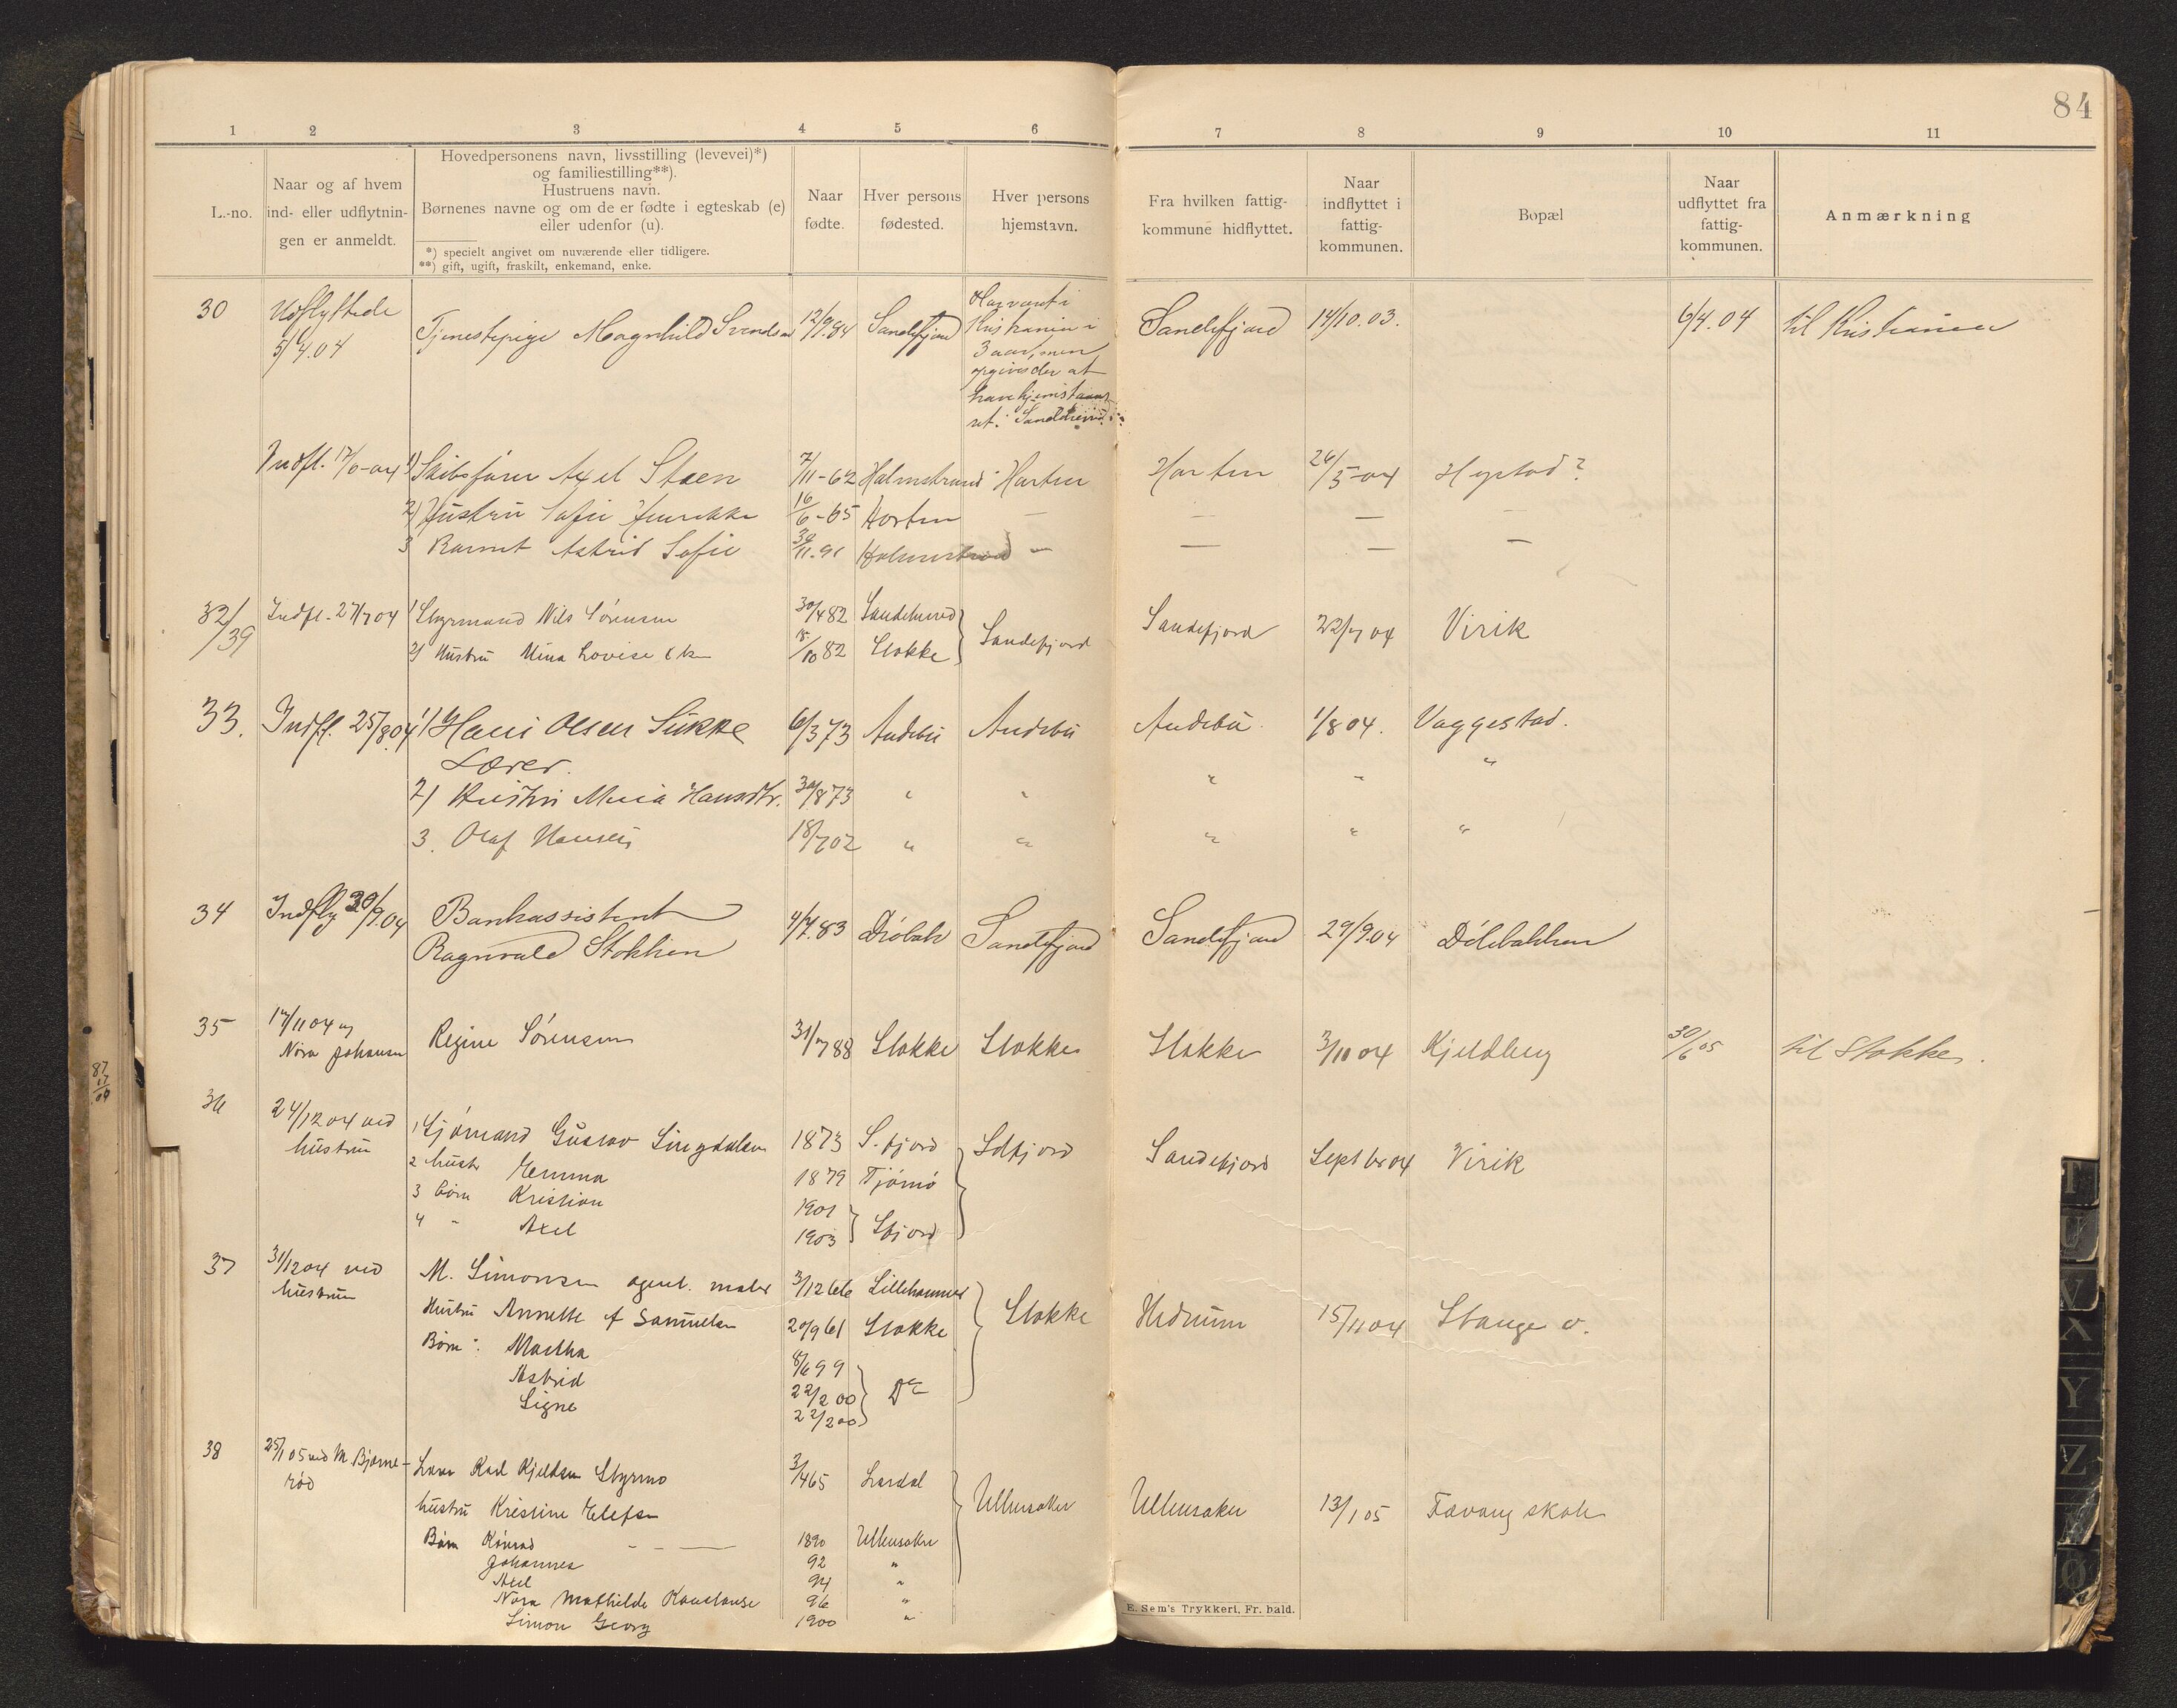 84
1 2 3 4 5 6 7 8 9 10 11
L.-no.
Naar og af hvem
ind- eller udflytnin-
gen er anmeldt.
Hovedpersonens navn, livsstilling (levevei)*)
og familiestilling**).
Hustruens navn.
Børnenes navne og om de er fødte i egteskab (e)
eller udenfor (u).
*) specielt angivet om nuværende eller tidligere.
**) gift, ugift, fraskilt, enkemand, enke.
Naar
fødte.
Hver persons
fødested.
Hver persons
hjemstavn.
Fra hvilken fattig-
kommune hidflyttet.
Naar
indflyttet i
fattig-
kommunen.
Bopæl
Naar
udflyttet fra
fattig-
kommunen.
Anmærkning
30 Udflyttede Tjenestepige Magnhild Svendsen 12/9.84 Sandefjord Sandefjord 14/10.03. 6/4.04 til Kristiania
5/4.04
Har været i
Kristiania i
3 aar, men
opgives der at
have hjemstavns
ret i Sandeherred
Indfl. 17/6-04 1) Skibsfører Axel Steen 7/11-62 Holmstrand Horten Horten 26/5-04 Hystad?
2) Hustru Sofie Henrikke 16/6-65 Horten — — — —
3 Barnet Astrid Sofie 30/11.91 Holmestrand — — — —
32/39 Indfl. 27/7 04 1 Styrmand Nils Sørensen 30/4 82 Sandeherred Sandefjord Sandefjord 22/7 04 Virik
2) Hustru Mina Lovise 15/10 82 Stokke
33. Indfl. 25/8.04 1) Hans Olsen Sukke 6/3 73 Andebu Andebu Andebu 1/8 04. Vaggestad.
Lærer.
2) Hustru Maria Hansdtr. 30/8 73 " " " " "
3. Olaf Hansen 18/7 02 " " " " "
34 Indfly 30/9.04 Bankassistent 4/4.83 Drøbak Sandefjord Sandefjord 29/9.04 Dølebakken
Ragnvald Stokken
35 17/11 04 af Regine Sørensen 31/7 88 Stokke Stokke Stokke 3/10 04 Kjeldberg 30/6 05 til Stokke.
Nora Johansen
36 24/12 04 ved 1 Sjømand Gustav Lingdalsen 1873 S.fjord Sdfjord Sandefjord Septbr 04 Virik
hustru 2 hustr Emma 1879 Tjømø
3 børn Kristian 1901
4 " Axel 1903 Sfjord
37 31/12 04 ved M. Simonsen agent. maler 3/12 66 Lillehammer Stokke Hedrum 15/11 04 Stange
hustru Hustru Annette f Samuelsen 20/9 61 Stokke
Børn: Martha 8/6 99
Astrid 22/2 00 Do
Signe 22/2 00
38 25/1 05 ved M. Bjørne- Lærer Karl Kjeldsen Styrmo 3/4 65 Lardal Ullensaker Ullensaker 13/1 05 Fævang skole
rød
hustru Kristine Elefsen
Børn Konrad — — — 1890 Ullensaker
Johannes 92 "
Axel 94 "
Nora Mathilde Konstanse 96 "
Simon Georg 1900 "
E. Sem's Trykkeri, Fr.hald.
T
U
V
X
Y
Z
Æ
Ø